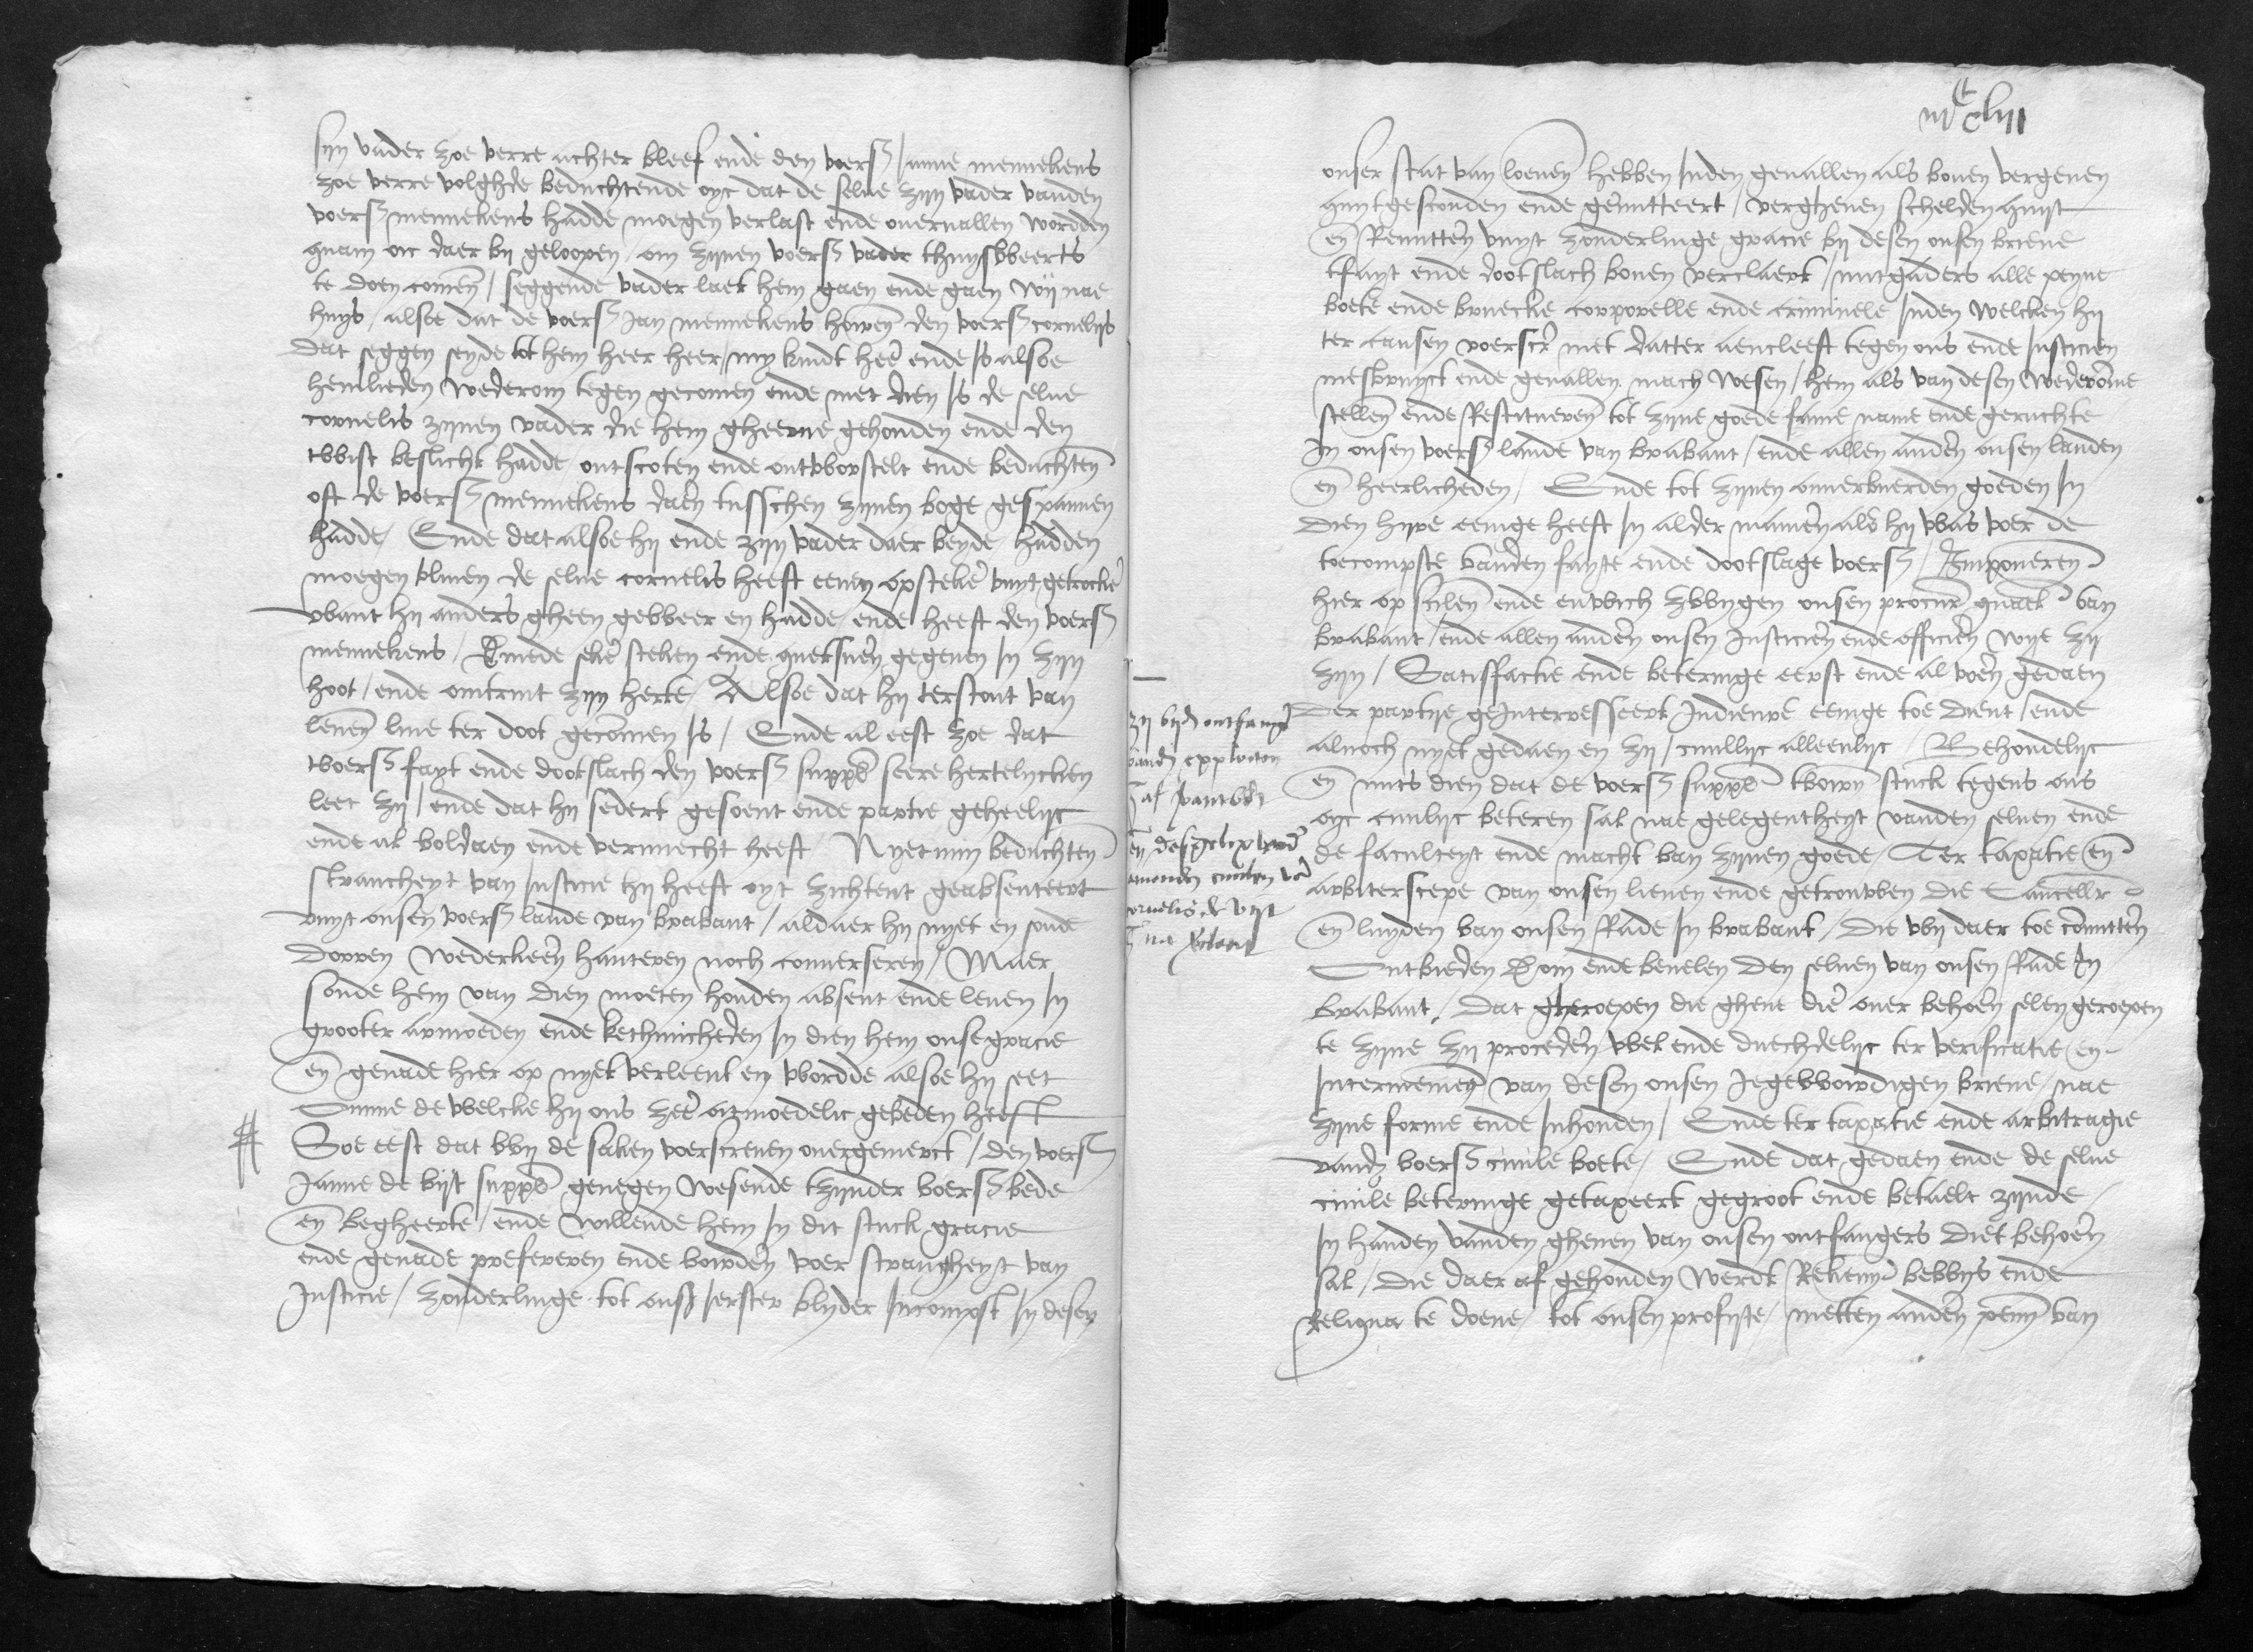 syn vader zoe verre achter bleef ende den voers Janne mennekens
zoe verre volghde beduchtende oyc dat de selue zyn vader vanden
voers mennekens hadde moegen verlast ende ouervallen wordden
quam oic daer by geloopen om zynen voers vader thuysweerts
te doen comen / seggende vader laet hem gaen ende gaen wij nae
huys / alsoe dat de voers Jan mennekens horen den voers cornelys
dat seggen seyde tot hem heer heer / my kindt heer ende is alsoe
hemlieden wederom tegen gecomen ende met dien is de selue
cornelis zynen vader die hem gheerne gehouden ende den
twist beslicht hadde ontscoten ende ontworstelt ende beduchten
oft de voers mennekens daen tusschen zynen boge gespannen
hadde / Ende dat alsoe hy ende zyn vader daer beyde hadden
moegen blyuen de selue cornelis heeft eenen opsteker vuytgetrocken
want hy anders gheen geweer en hadde ende heeft den voers
mennekens / steken ende quetsueren gegeuen in zyn
hoot / ende omtrint zyn herte / Alsoe dat hy terstont van
leuen liue ter doot gecomen is / Ende al eest zoe dat
tvoers fayt ende dootslach den voers suppt seere hertelycken
leet zy / ende dat hy sedert gesoent ende partie geheelyc
ende al voldaen ende vernuecht heeft / Nyetmin beduchten
strancheyt van Justicie hy heeft oyt zichtent geabsenteert
vuyt onsen voers lande van brabant / aldaer hy nyet en soude
dorren wederkeren hanteren noch conuerseren / Maer
soude hem van dien moeten houden absent ende leuen in
grooter armoeden ende ketyuicheden in dien hem onse gracie
en genade hier op nyet verleent en wordde alsoe hy seet
Omme de welcke hy ons zeer oitmoedelic gebeden heeft
Soe eest dat wy de saken voerscreuen ouergemerct / den voers
Janne de vyt suppt genegen wesende tzynder voers bede
en begheerte / ende willende hem in dit stuck gracie
ende genade prefereren ende vorderen voer strangheyt van
Justicie / zonderlinge tot onser ierster blyder incompst in deser
iiijC xlij
onser stat van loenen hebben inden geuallen als bouen vergeuen
quytgesconden ende geremitteert / vergheuen schelden quyt
en Remitteren vuyt zonderlinge gracie by desen onsen brieue
tfayt ende dootslach bouen verclaert / mitgaders alle peyne
boete ende bruecke corporelle ende criminele inden welcken hy
ter causen voerscr met datter aencleeft tegen ons ende Justicien
mesbruyct ende geuallen mach wesen / hem als van desen wederomme
stellen ende Restitueren tot zyne goede fame name ende geruchte
In onsen voers lande van brabant / ende allen anderen onsen landen
en heerlicheden / Ende tot zynen onuerbuerden goeden in
dien hyre eenige heeft in alder manieren als hy was voer de
toecompste vanden fayte ende dootslage voers / Imponeren
hier op silen ende eewich zwygen onsen procur generael van
brabant / ende allen anderen onsen Justicieren ende officieren wye zy
zyn / Satisfactie ende beteringe eerst ende al voeren gedaen
der partye geinteresseert Indienre eenige toe dient / ende
alnoch nyet gedaen en zy / ciuilyc alleenlyc / Behoudelyc
en mits dien dat de voers suppt tvoirn stuck tegens ons
oyc ciuilyc beteren sal nae gelegentheyt vanden seluen ende
de faculteyt ende macht van zynen goede / Ter taxatie en
arbiterscepe van onsen lieuen ende getrouwen die Cancellr
en luyden van onsen Rade in brabant / Die wy daer toe committeren
Ontbieden dairom ende beuelen den seluen van onsen Rade in
brabant / Dat gheroepen die ghene dier ouer behoeren selen geroepen
te zyne zy procederen wel ende duechdelyc ter verificatie en
Interinemen van desen onsen Jegewoirdigen brieue / nae
zyne forme ende inhouden / Ende ter taxatie ende arbitragie
vanden voers ciuile boete / Ende dat gedaen ende de selue
ciuile beteringe getaxeert gegroot ende betaelt zynde
in handen vanden ghenen van onsen ontfangers diet behoeren
sal / die daer af gehouden werdt Rekeninge bewys ende
Reliqua te doene / tot onsen profyte / metten anderen penningen van
zy byden ontfanger
vanden exploiten
af brabant
cornelis de vyt